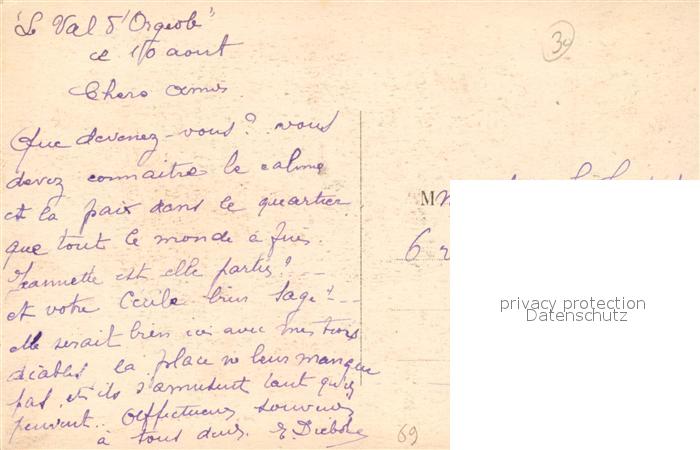 "Le Val d'Orgeole"
ce 10 aout
Chers amis
Que devenez-vous? vous
devez connaitre le calme
et la paix dans le quartier
que tout le monde a fui.
Jeannette est elle partie?
et votre Cécile bien sage?
elle serait bien ici avec mes trois
diables la place ne leur manque
pas, et ils s'amusent tant qu'ils
peuvent. Affectueux souvenirs
à tous deux. E. Diebold
30
M
6
69
privacy protection
Datenschutz